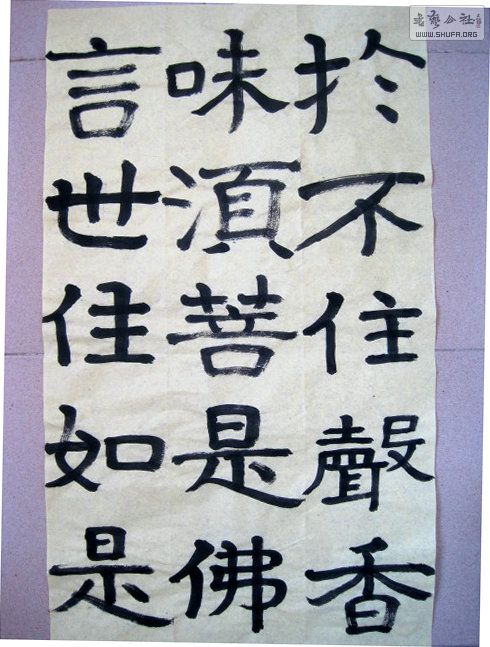 於不住聲香
味湏菩是佛
言世佳如是
書藝公社
WWW.SHUFA.ORG